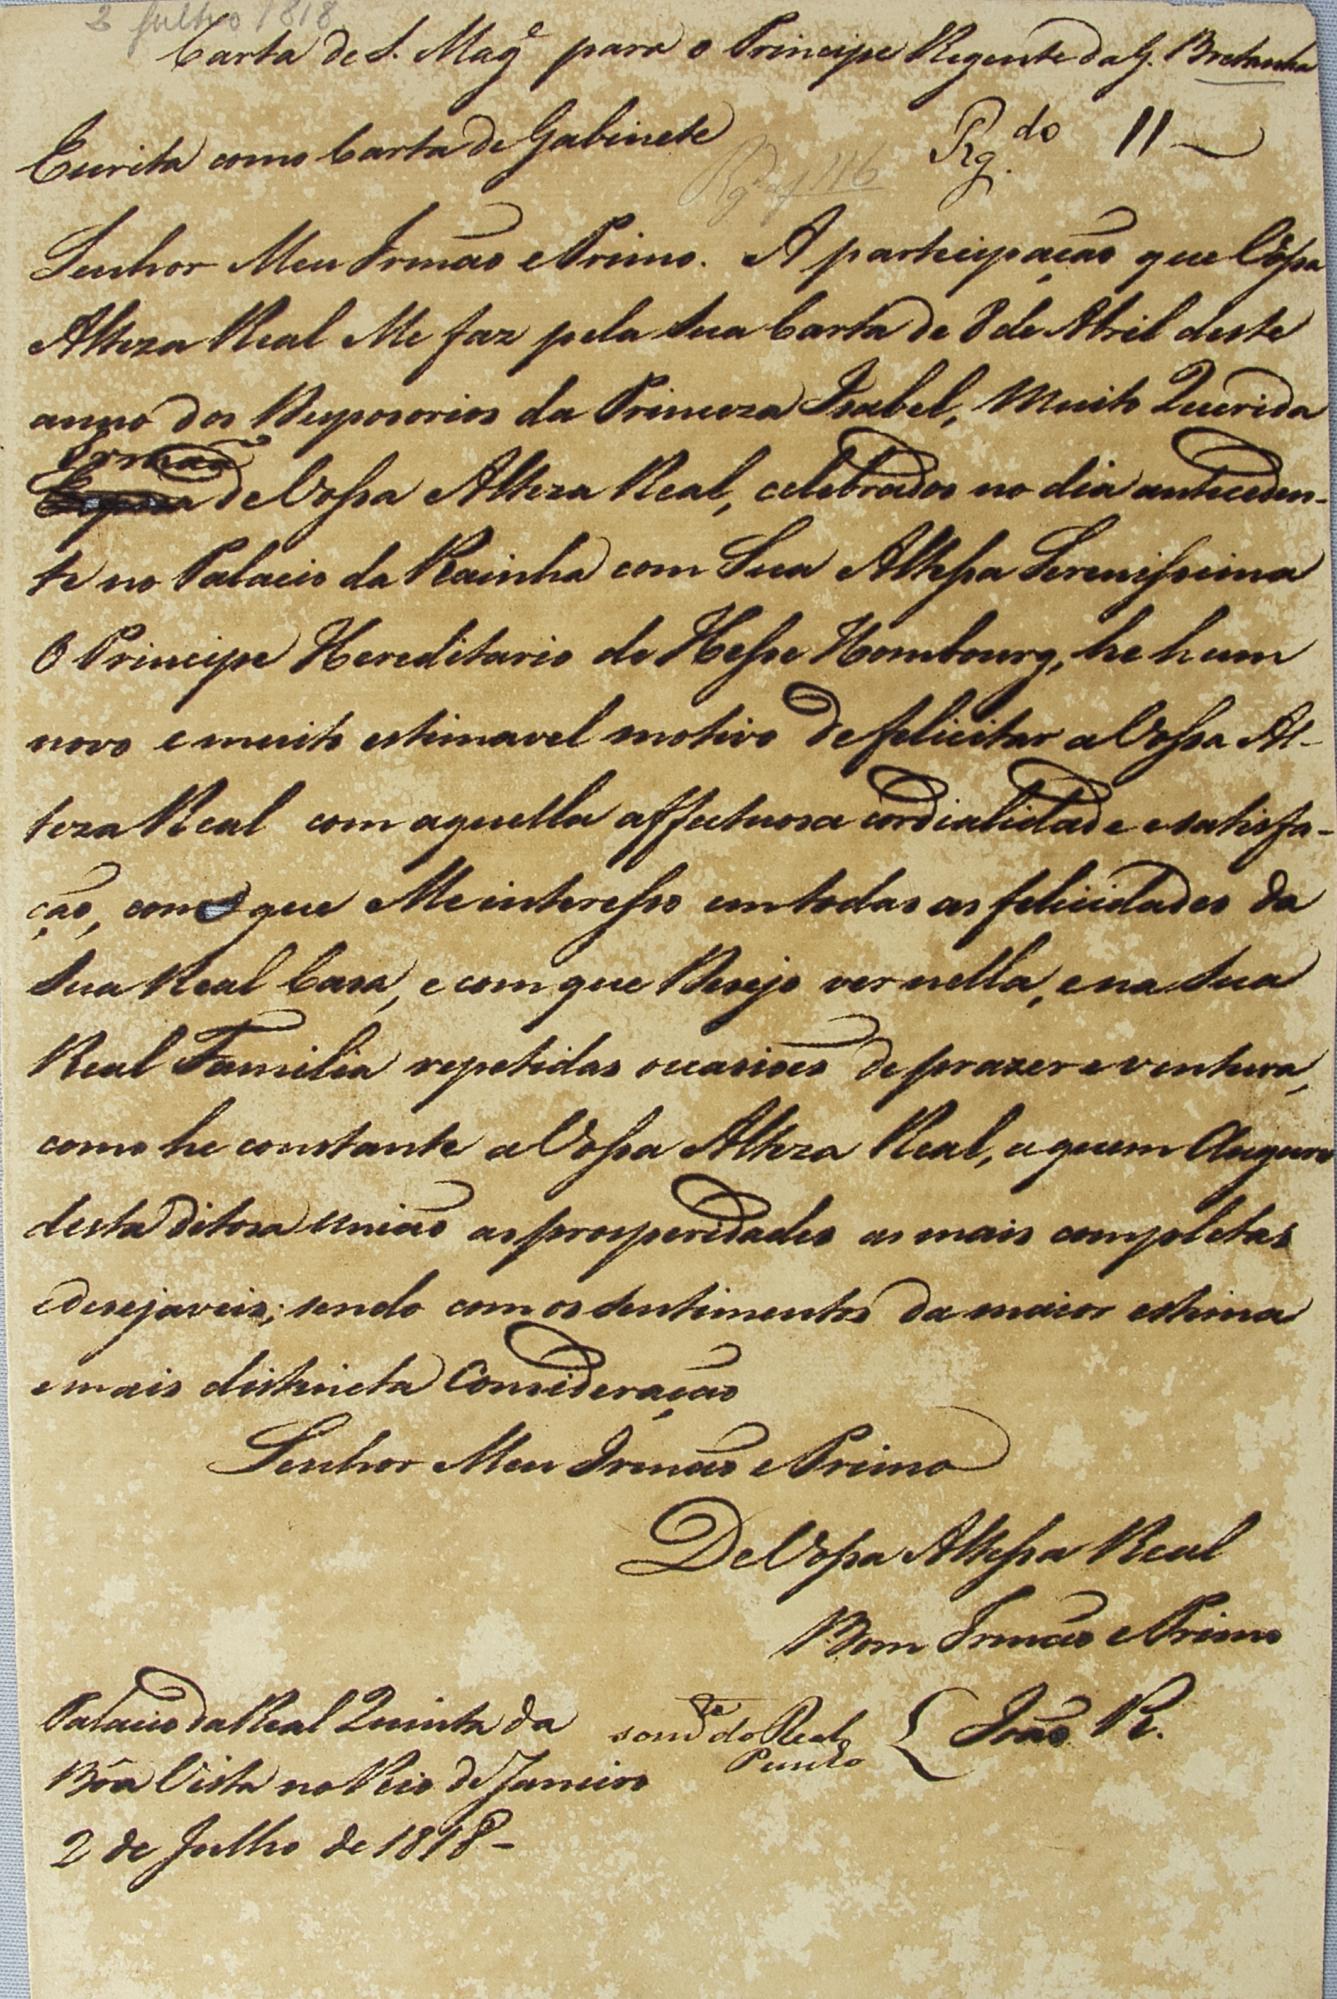 2 julho 1818
Carta de S. Mag.e para o Principe Regente da G. Bretanha
Escrita como Carta de Gabinete Rg.do 11
Senhor Meu Irmão e Primo. A participação que Vossa
Alteza Real Me faz pela sua Carta de 8 de Abril deste
anno dos Desposorios da Princeza Isabel, Muito Querida
Irmaã
Esposa de Vossa Alteza Real, celebrados no dia anteceden-
te no Palacio da Rainha com Sua Altessa Serenissima
O Principe Hereditario de Hesse Hombourg, he hum
novo e muito estimavel motivo de felicitar a Vossa Al-
teza Real com aquella affectuosa cordialidade e satisfa-
ção, com que Me interesso em todas as felicidades da
sua Real Casa, e com que Desejo ver nella, e na sua
Real Familia repetidas occasiões de prazer e ventura,
como he constante a Vossa Alteza Real, a quem Auguro
desta ditosa união as prosperidades as mais completas
e desejaveis; sendo com os sentimentos da maior estima
e mais distincta Consideração
Senhor Meu Irmão e Primo
De Vossa Altessa Real
Bom Irmão e Primo
Palacio da Real Quinta da som.te do Real João R.
Bôa Vista no Rio de Janeiro Punho
2 de Julho de 1818-